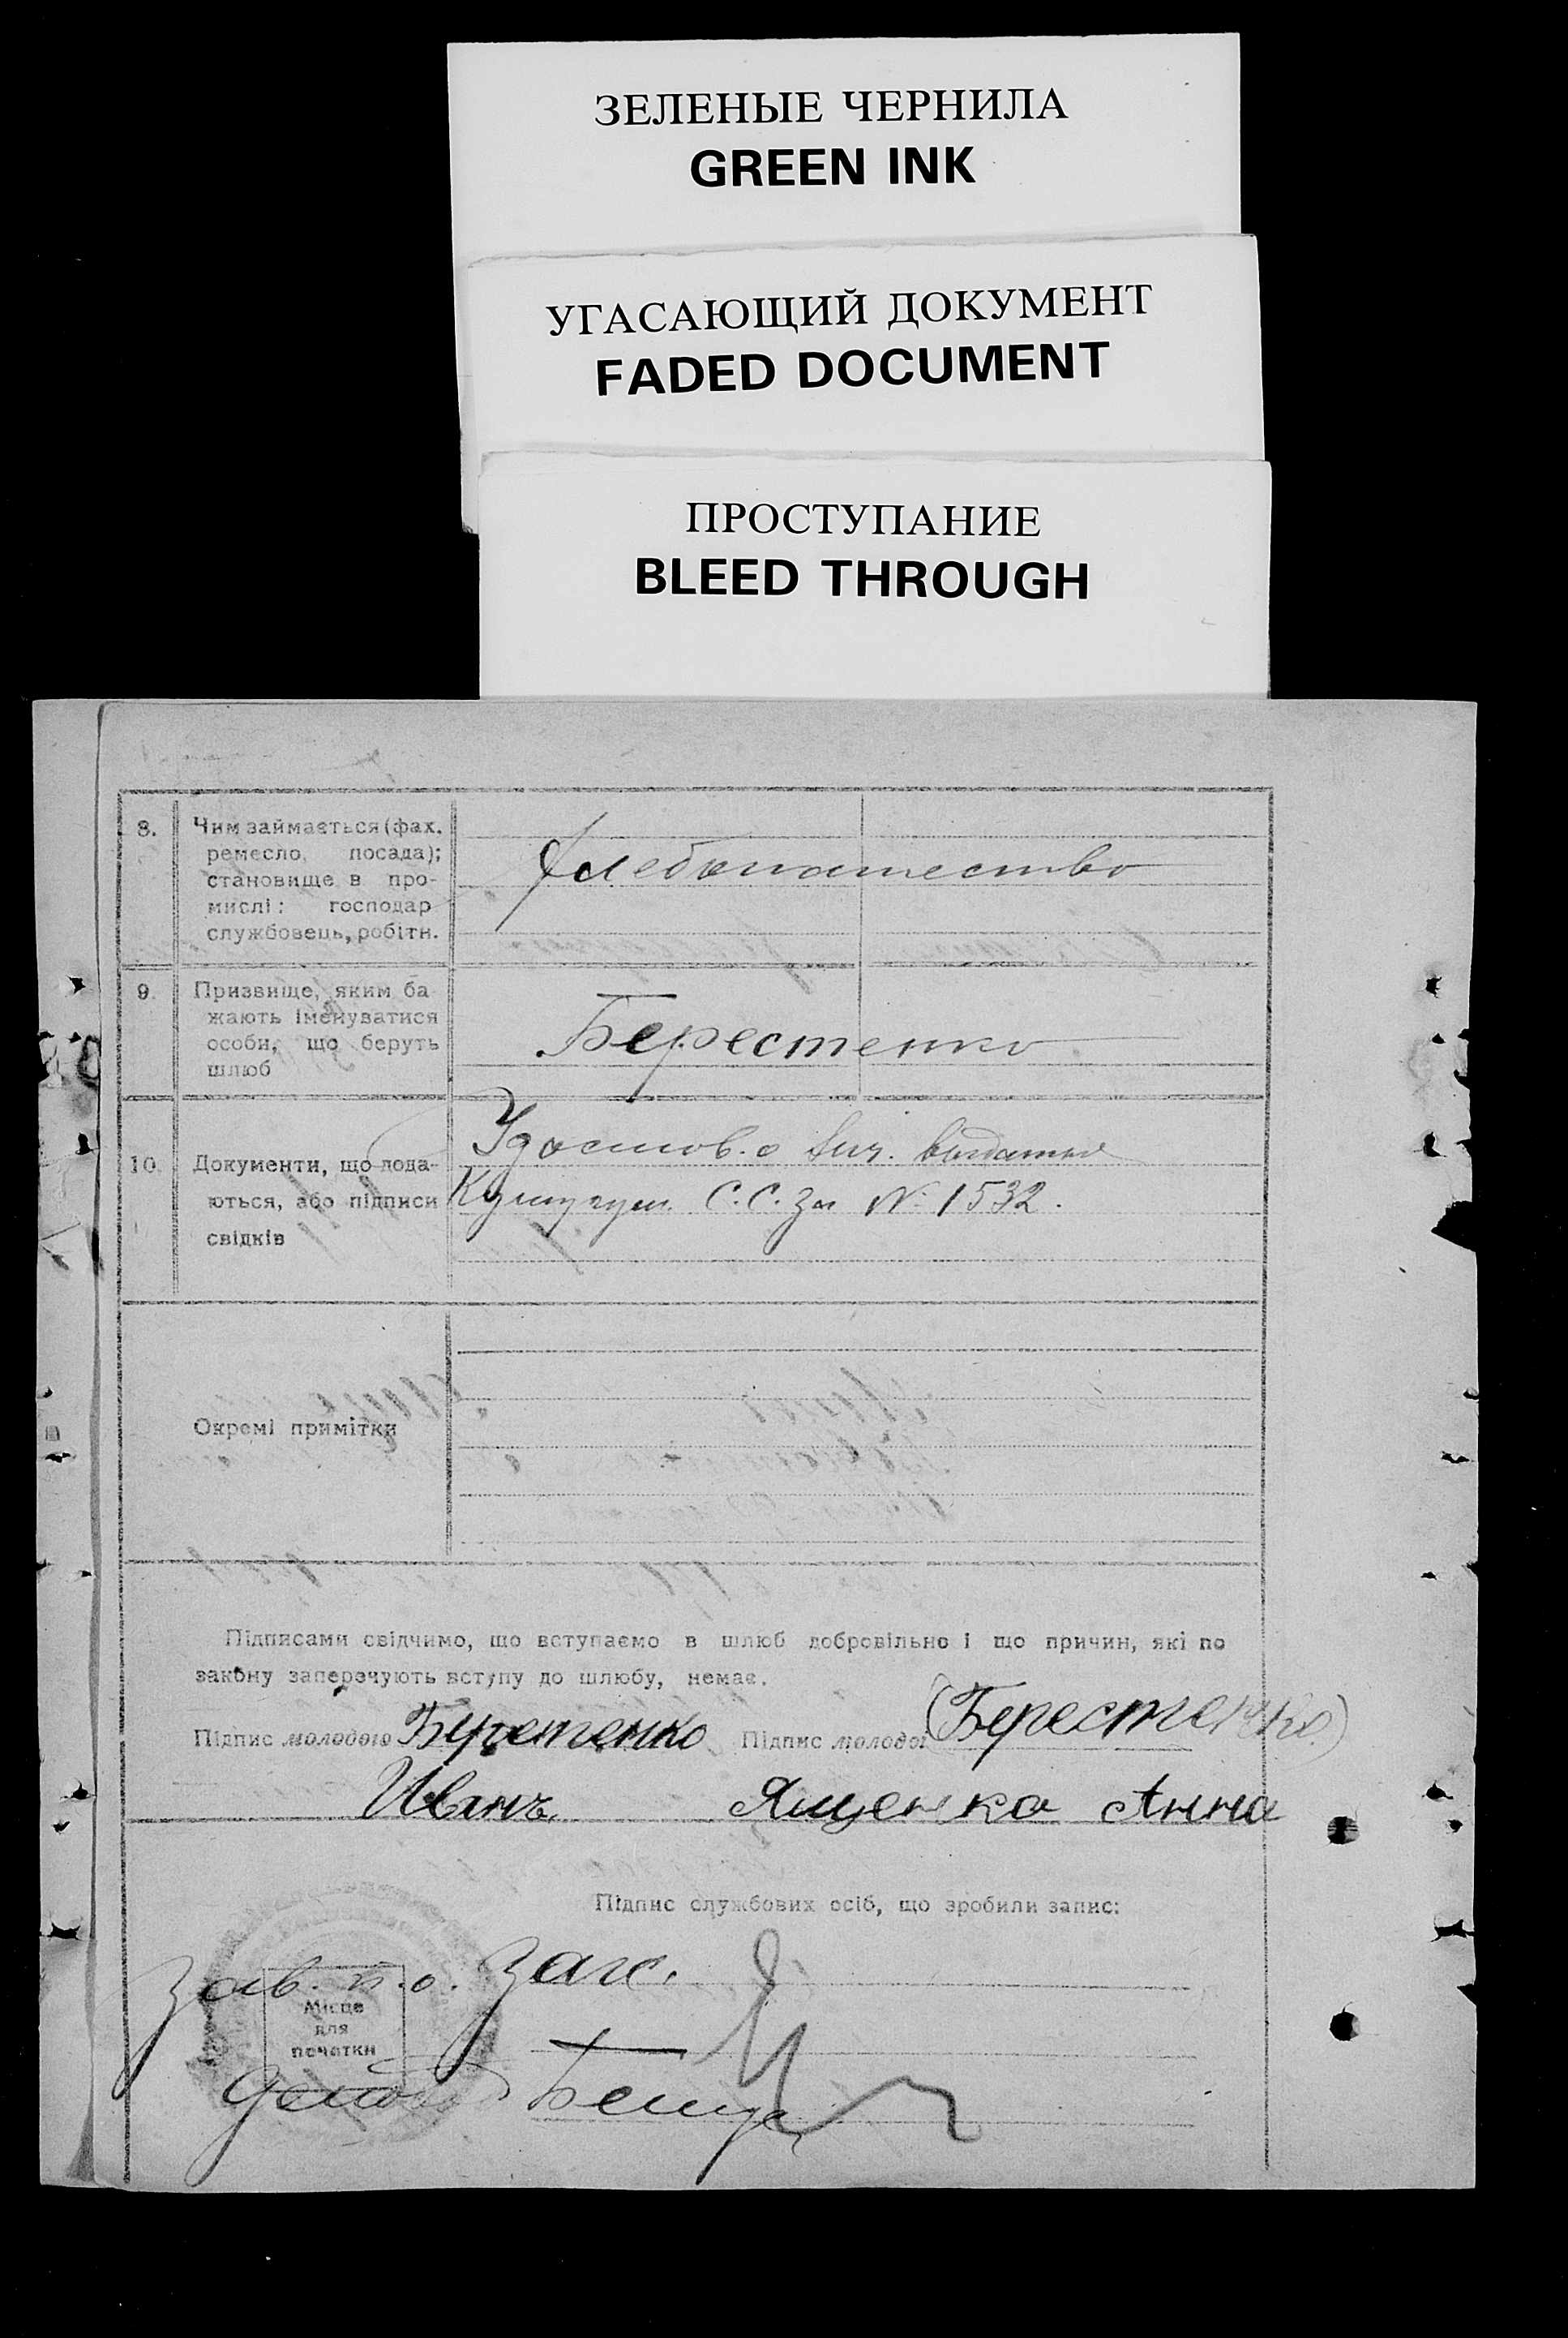 ЗЕЛЕНЫЕ ЧЕРНИЛА
GREEN INK
УГАСАЮЩИЙ ДОКУМЕНТ
FADED DOCUMENT
ПРОСТУПАНИЕ
BLEED THROUGH
8. Чим займається (фах,
ремесло, посада);
становище в про-
мислі: господар
службовець, робітн.
Хлебопашество
9. Призвище, яким ба
жають іменуватися
особи, що беруть
шлюб
Берестенко
10. Документи, що пода-
ються, або підписи
свідків
Удостов. о лич. выданные
С.С. за № 1532.
Окремі примітки
Підписами свідчимо, що вступаємо в шлюб добровільно і що причин, які по
закону заперечують вступу до шлюбу, немає.
Підпис молодого Беретенко Підпис молодої (Берестенко)
Иванъ Ященко Анна
Підпис службових осіб, що зробили запис:
Зав. п.о. Загс.
Місце
для
печатки